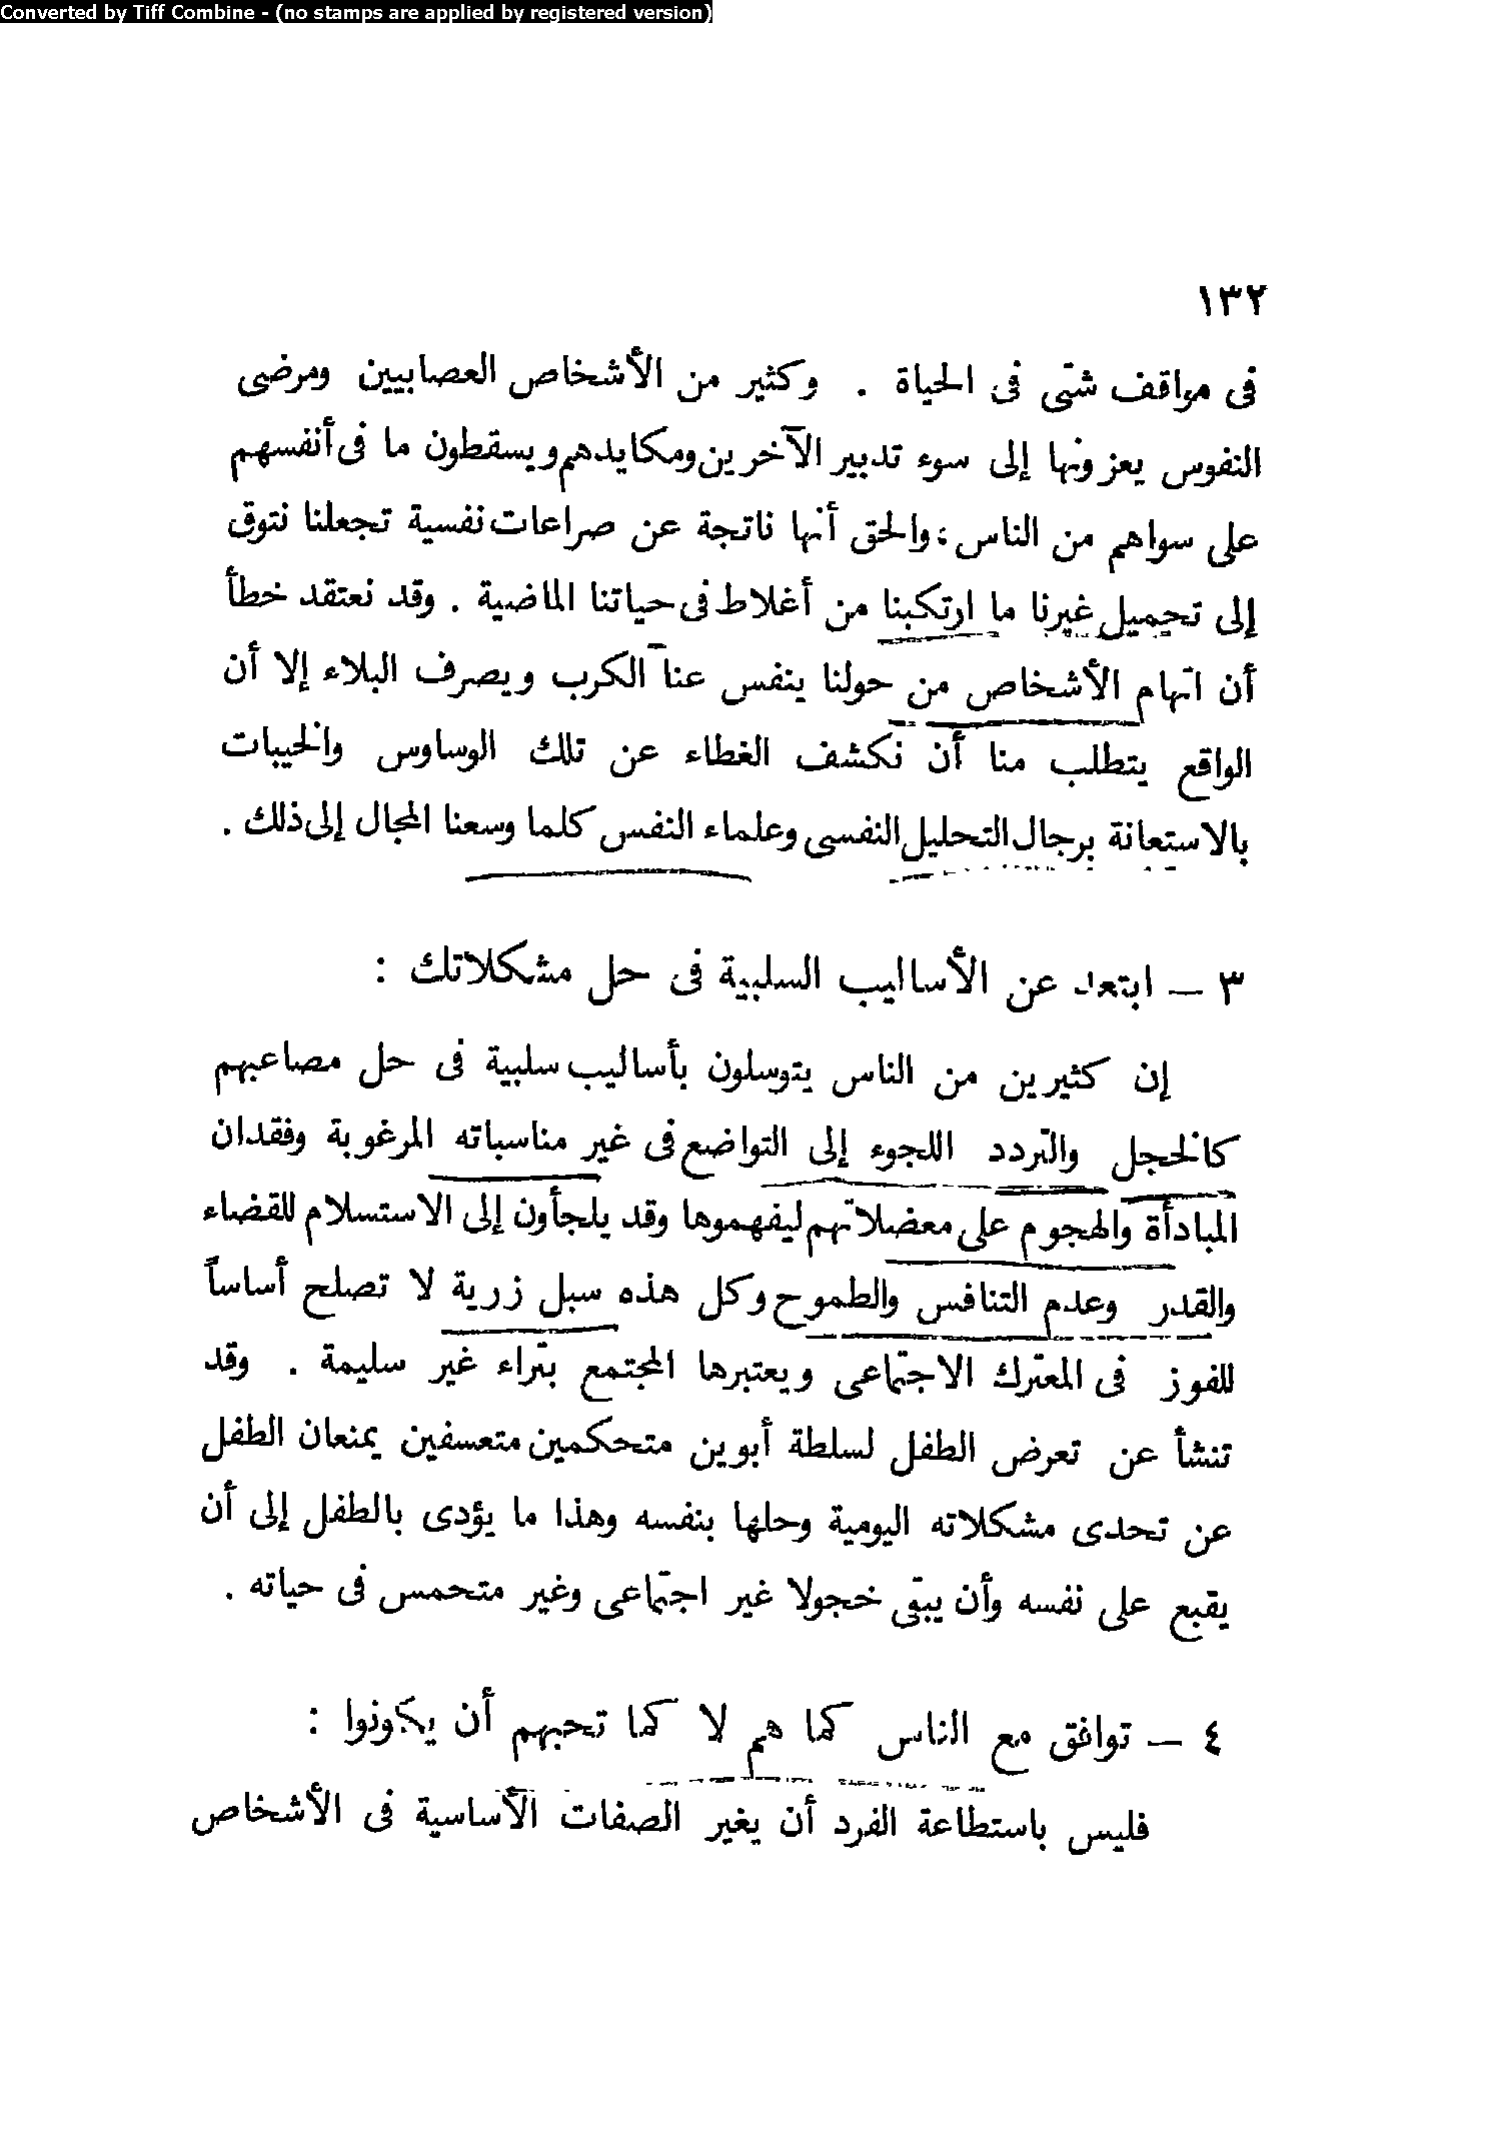 Converted by Tiff Combine - (no stamps are applied by registered version)
١٣٢
فى مواقف شتى فى الحياة . وكثير من الأشخاص العصابيين ومرضى
النفوس يعزونها إلى سوء تدبير الآخرين ومكايدهم ويسقطون ما فى أنفسهم
على سواهم من الناس ، والحق أنها ناتجة عن صراعات نفسية تجعلنا نتوق
إلى تحميل غيرنا ما ارتكبنا من أغلاط فى حياتنا الماضية . وقد نعتقد خطأ
أن اتهام الأشخاص من حولنا ينفس عنا الكرب ويصرف البلاء إلا أن
الواقع يتطلب منا أن نكشف الغطاء عن تلك الوساوس والخيبات
بالاستعانة برجال التحليل النفسى وعلماء النفس كلما وسعنا المجال إلى ذلك .
٣ – ابتعد عن الأساليب السلبية فى حل مشكلاتك :
إن كثيرين من الناس يتوسلون بأساليب سلبية فى حل مصاعبهم
كالخجل والتردد اللجوء إلى التواضع فى غير مناسباته المرغوبة وفقدان
المبادأة والهجوم على معضلاتهم ليفهموها وقد يلجأون إلى الاستسلام للقضاء
والقدر وعدم التنافس والطموح وكل هذه سبل زرية لا تصلح أساساً
للفوز فى المعترك الاجتماعى ويعتبرها المجتمع بتراء غير سليمة . وقد
تنشأ عن تعرض الطفل لسلطة أبوين متحكمين متعسفين يمنعان الطفل
عن تحدى مشكلاته اليومية وحلها بنفسه وهذا ما يؤدى بالطفل إلى أن
يقبع على نفسه وأن يبقى خجولا غير اجتماعى وغير متحمس فى حياته .
٤ – توافق مع الناس كما هم لا كما تحبهم أن يكونوا :
فليس باستطاعة الفرد أن يغير الصفات الأساسية فى الأشخاص